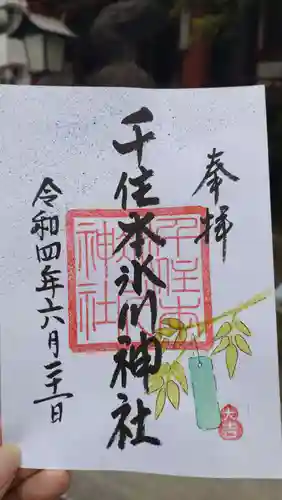 奉拝
千住本氷川神社
令和四年六月二十一日
千住本
氷川
神社
大吉